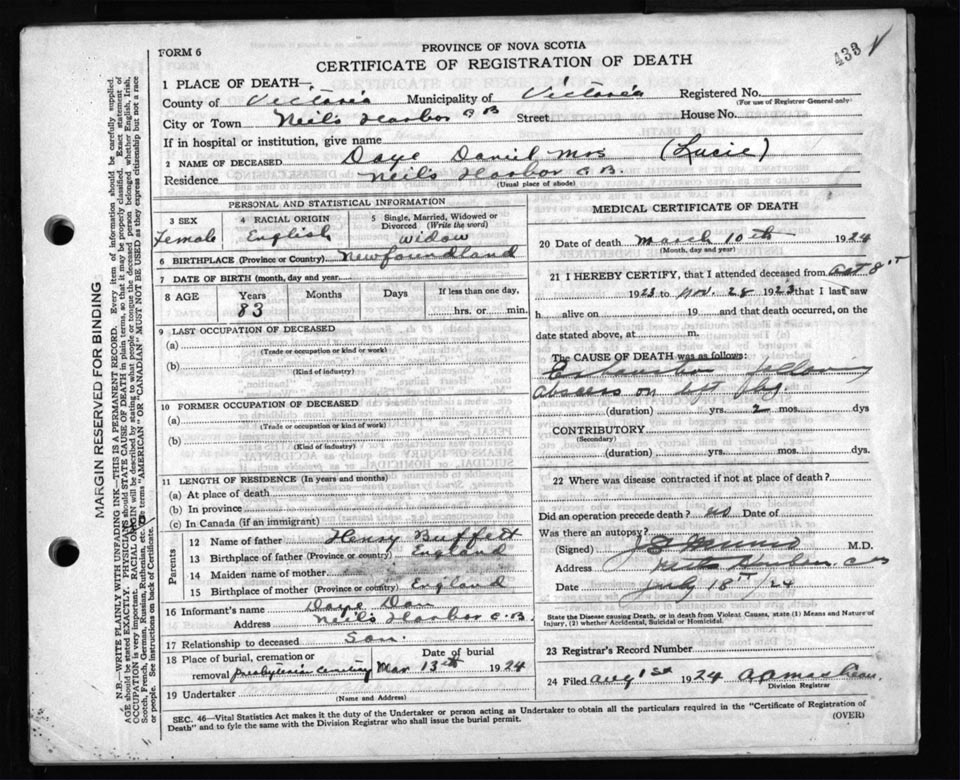 FORM 6
PROVINCE OF NOVA SCOTIA
CERTIFICATE OF REGISTRATION OF DEATH
433
1 PLACE OF DEATH—
County of Victoria Municipality of Victoria Registered No.
(For use of Registrar General only)
City or Town Neil's Harbor C B Street House No.
If in hospital or institution, give name
2 NAME OF DECEASED Daye Daniel Mrs (Lucie)
Residence Neil's Harbor C.B.
(Usual place of abode)
PERSONAL AND STATISTICAL INFORMATION
3 SEX Female
4 RACIAL ORIGIN English
5 Single, Married, Widowed or Divorced (Write the word) Widow
6 BIRTHPLACE (Province or Country) Newfoundland
7 DATE OF BIRTH (month, day and year)
8 AGE Years Months Days If less than one day,
83 hrs. or min.
9 LAST OCCUPATION OF DECEASED
(a)
(Trade or occupation or kind of work)
(b)
(Kind of industry)
10 FORMER OCCUPATION OF DECEASED
(a)
(Trade or occupation or kind of work)
(b)
(Kind of industry)
11 LENGTH OF RESIDENCE (In years and months)
(a) At place of death
(b) In province
(c) In Canada (if an immigrant)
Parents
12 Name of father Henry Buffett
13 Birthplace of father (Province or country) England
14 Maiden name of mother
15 Birthplace of mother (Province or country) England
16 Informant's name Daye Dan
Address Neil's Harbor C.B.
17 Relationship to deceased Son.
18 Place of burial, cremation or
removal Presbyterian Cemetery Mar 13th 1924
19 Undertaker
(Name and Address)
MEDICAL CERTIFICATE OF DEATH
20 Date of death March 10th 1924
(Month, day and year)
21 I HEREBY CERTIFY, that I attended deceased from Oct 8th
1923 to Nov. 28 1923 that I last saw
h alive on 19 and that death occurred, on the
date stated above, at m.
The CAUSE OF DEATH was as follows:
Exhaustion following
abscess on left
(duration) yrs. 2 mos. dys
CONTRIBUTORY
(Secondary)
(duration) yrs. mos. dys.
22 Where was disease contracted if not at place of death?
Did an operation precede death? no Date of
Was there an autopsy?
(Signed) M.D.
Address Neils Harbor
Date July 18th/24
State the Disease causing Death, or in death from Violent Causes, state (1) Means and Nature of
Injury, (2) whether Accidental, Suicidal or Homicidal.
23 Registrar's Record Number
24 Filed Aug 1st 1924
Division Registrar
SEC. 46—Vital Statistics Act makes it the duty of the Undertaker or person acting as Undertaker to obtain all the particulars required in the "Certificate of Registration of
Death" and to fyle the same with the Division Registrar who shall issue the burial permit.
(OVER)
MARGIN RESERVED FOR BINDING
N.B.—WRITE PLAINLY WITH UNFADING INK—THIS IS A PERMANENT RECORD. Every item of information should be carefully supplied.
AGE should be stated EXACTLY. PHYSICIANS should STATE CAUSE OF DEATH in plain terms, so that it may be properly classified. Exact statement of
OCCUPATION is very important. RACIAL ORIGIN will be described by stating to what people or tongue the deceased person belonged whether English, Irish,
Scotch, French, German, Russian, Ruthenian, etc. The terms "AMERICAN" OR "CANADIAN" MUST NOT BE USED as they express citizenship but not a race
or people. See instructions on back of Certificate.